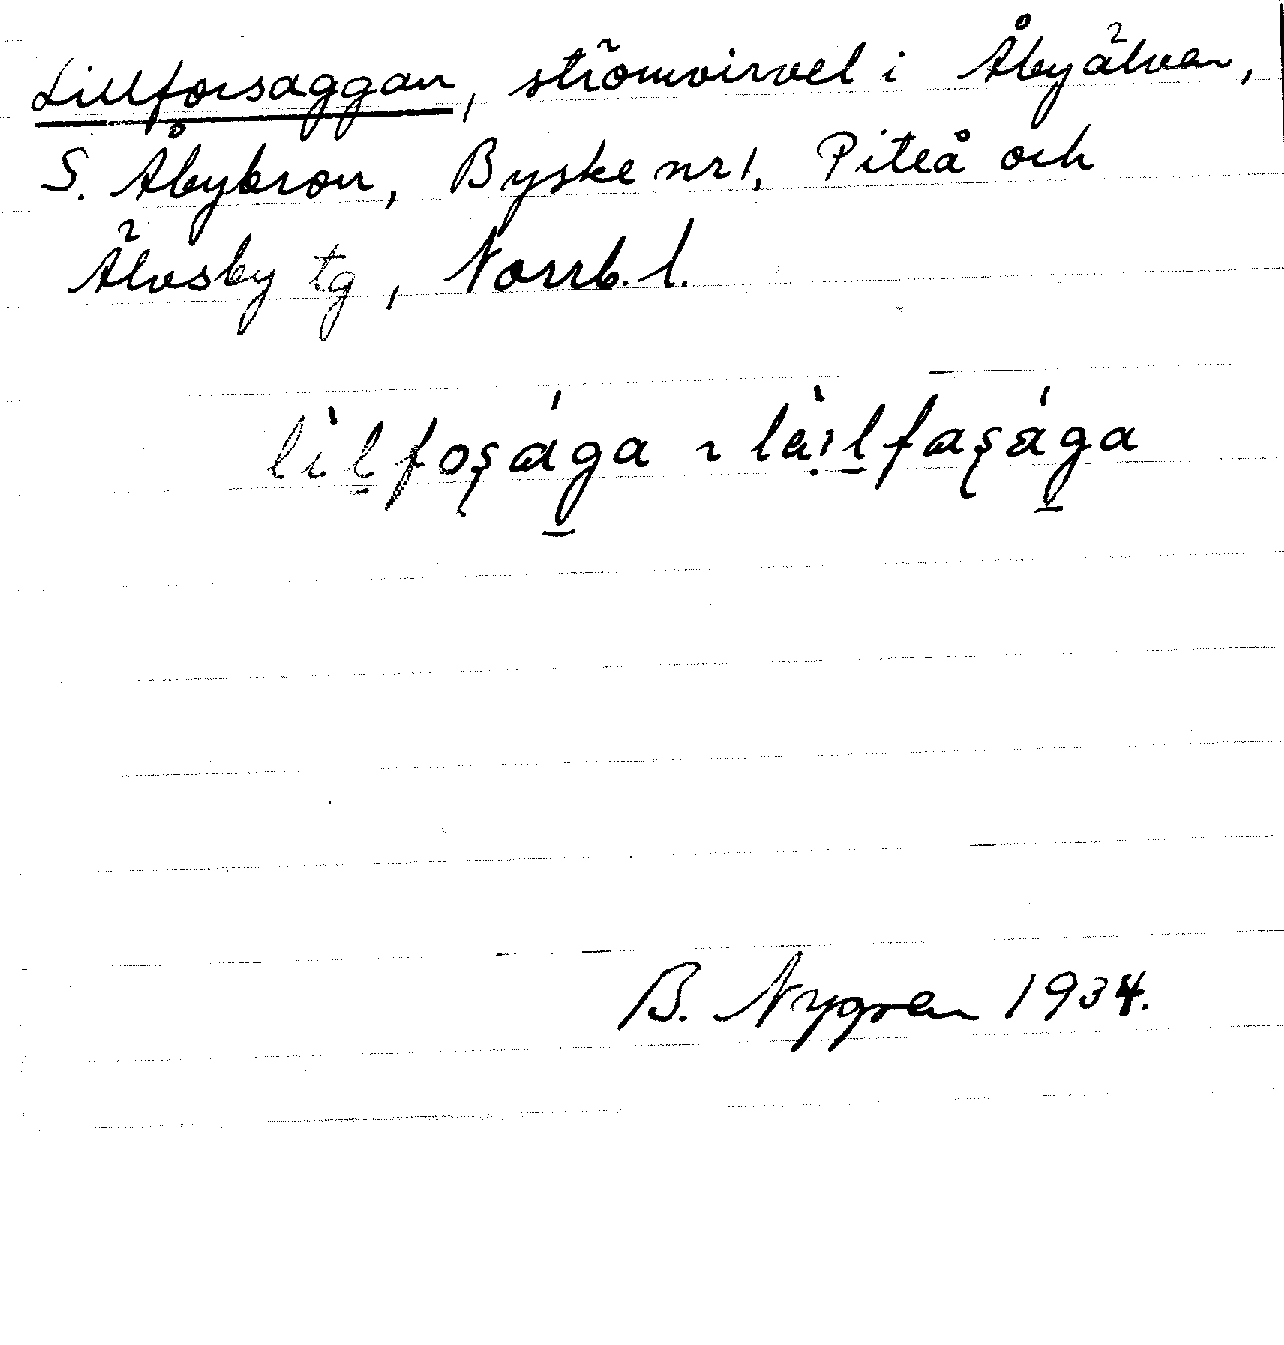 Lillforsaggan, strömvirvel i Åbyälven,
S. Åbybron, Byske nr 1, Piteå och
Älvsby tg, Norrb. l.
lìl̠foʂág̠a ~ lạ̀ıl̠faʂág̠a
B. Nygren 1934.